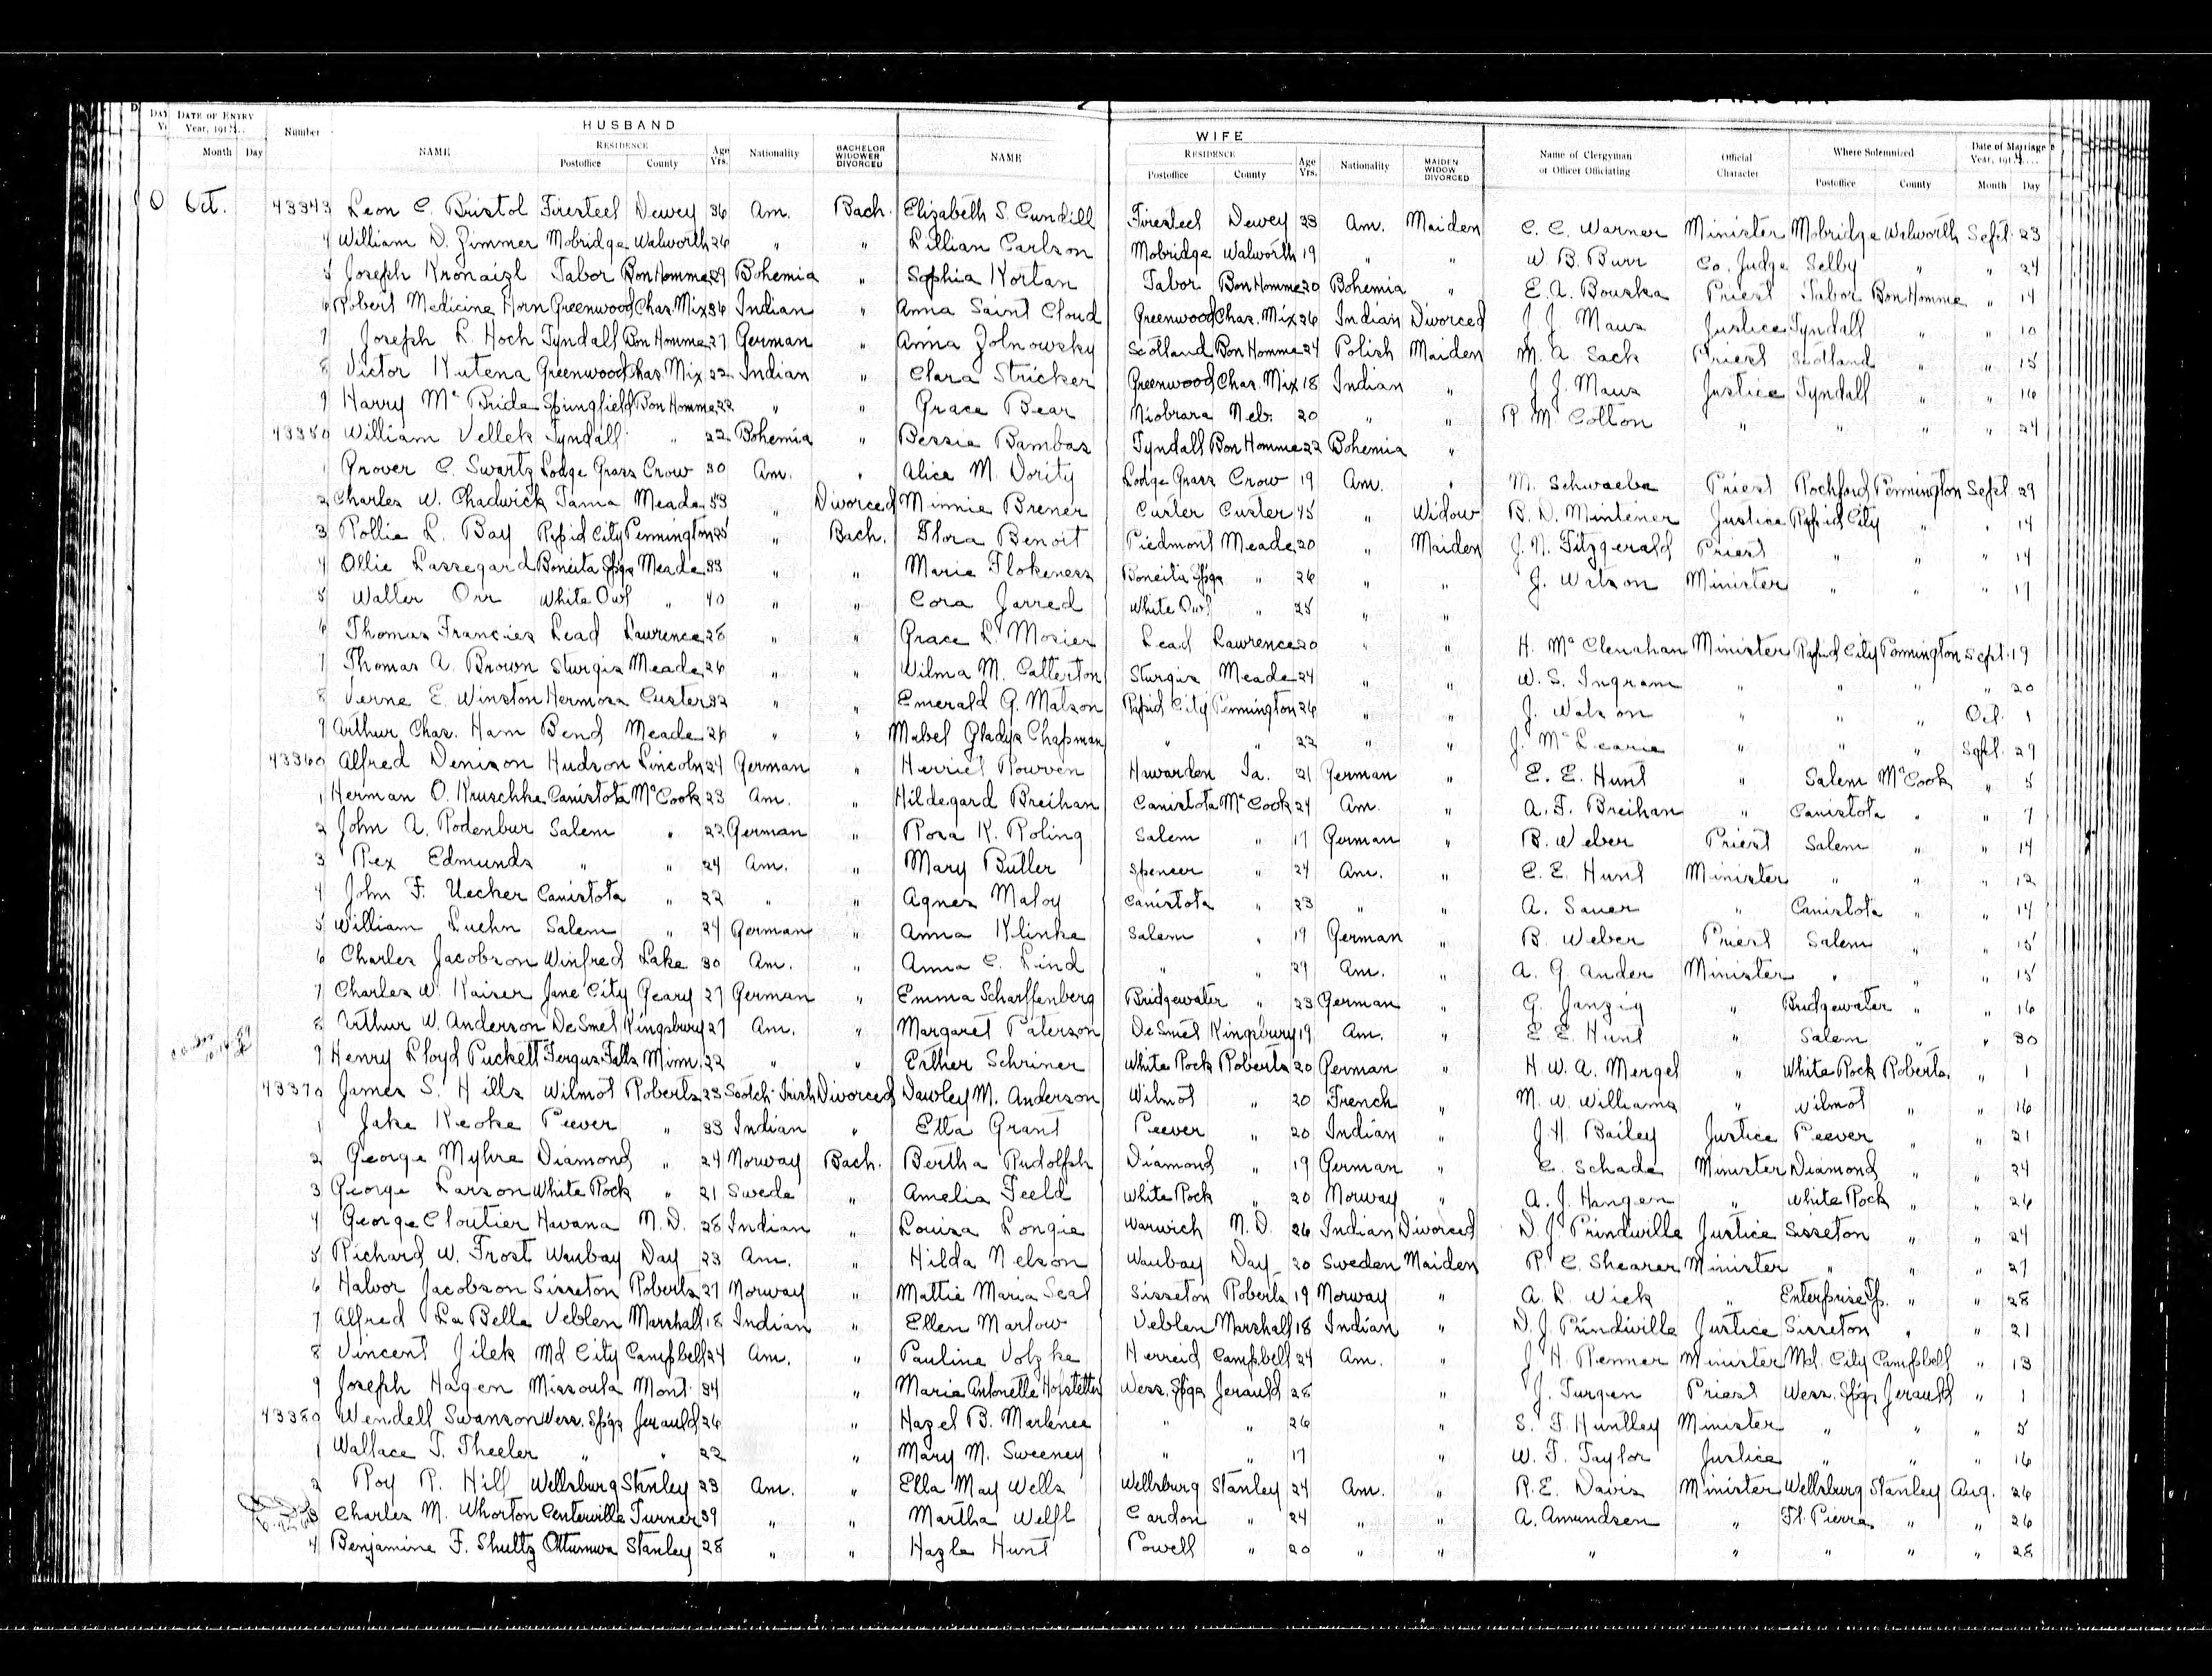 DATE OF ENTRY Year, 191 Month Day Number HUSBAND NAME RESIDENCE Postoffice County Age Yrs. Nationality BACHELOR WIDOWER DIVORCED NAME WIFE RESIDENCE Postoffice County Age Yrs. Nationality MAIDEN WIDOW DIVORCED Name of Clergyman or Officer Officiating Official Character Where Solemnized Postoffice County Date of Marriage Year, 1914 Month Day
Oct. 43343 Leon C. Bristol Firesteel Dewey 36 Am. Bach. Elizabeth S. Cundill Firesteel Dewey 33 Am. Maiden C. C. Warner Minister Mobridge Walworth Sept. 23
4 William D. Zimmer Mobridge Walworth 26 " " Lillian Carlson Mobridge Walworth 19 " " W. B. Burr Co. Judge Selby " " 24
5 Joseph Kronaizl Tabor Bon Homme 29 Bohemia " Sophia Kortan Tabor Bon Homme 20 Bohemia " E. A. Bouska Priest Tabor Bon Homme " 14
6 Robert Medicine Horn Greenwood Chas. Mix 36 Indian " Anna Saint Cloud Greenwood Chas. Mix 26 Indian Divorced J. J. Maus Justice Tyndall " " 10
7 Joseph L. Hoch Tyndall Bon Homme 27 German " Anna Zolnowsky Scotland Bon Homme 24 Polish Maiden M. A. Sack Priest Scotland " " 15
8 Victor Kutena Greenwood Chas. Mix 22 Indian " Clara Stricker Greenwood Chas. Mix 18 Indian " J. J. Maus Justice Tyndall " " 16
9 Harry McBride Springfield Bon Homme 22 " " Grace Bear Niobrara Neb. 20 " " R. M. Cotton " " " " 24
43350 William Vellek Tyndall " 22 Bohemia " Bessie Bambas Tyndall Bon Homme 22 Bohemia "
1 Grover C. Swartz Lodge Grass Crow 30 Am. " Alice M. Dority Lodge Grass Crow 19 Am. " M. Schwaebe Priest Rochford Pennington Sept. 29
2 Charles W. Chadwick Tama Meade 53 " Divorced Minnie Brener Custer Custer 45 " Widow B. D. Mintener Justice Rapid City " " 14
3 Rollie L. Bay Rapid City Pennington 25 " Bach. Flora Benoit Piedmont Meade 20 " Maiden J. N. Fitzgerald Priest " " " 14
4 Ollie Lassegard Boneita Spgs Meade 33 " " Marie Flokeness Boneita Spgs " 26 " " J. Watson Minister " " " 17
5 Walter Orr White Owl " 40 " " Cora Jarred White Owl " 25 " "
6 Thomas Francies Lead Lawrence 28 " " Grace L. Mosier Lead Lawrence 20 " " H. McClenahan Minister Rapid City Pennington Sept. 19
7 Thomas A. Brown Sturgis Meade 26 " " Wilma M. Catterton Sturgis Meade 24 " " W. S. Ingram " " " " 20
8 Verne E. Winston Hermosa Custer 32 " " Emerald G. Matson Rapid City Pennington 26 " " J. Watson " " " Oct. 1
9 Arthur Chas. Ham Bend Meade 26 " " Mabel Gladys Chapman " " 22 " " J. McLearie " " " Sept. 29
43360 Alfred Denison Hudson Lincoln 24 German " Herriet Rowven Hawarden Ia. 21 German " E. E. Hunt " Salem McCook " 5
1 Herman O. Kruschke Canistota McCook 23 Am. " Hildegard Breihan Canistota McCook 24 Am. " A. F. Breihan " Canistota " " 7
2 John A. Rodenbur Salem " 22 German " Rosa K. Roling Salem " 17 German " B. Weber Priest Salem " " 14
3 Rex Edmunds " " 24 Am. " Mary Butler Spencer " 24 Am. " E. E. Hunt Minister " " " 12
4 John F. Uecker Canistota " 22 " " Agnes Maloy Canistota " 23 " " A. Sauer " Canistota " " 14
5 William Luehn Salem " 24 German " Anna Klinke Salem " 19 German " B. Weber Priest Salem " " 15
6 Charles Jacobson Winfred Lake 30 Am. " Anna C. Lind " " 29 Am. " A. G. Ander Minister " " " 15
7 Charles W. Kaiser Jane City Geary 27 German " Emma Scharffenberg Bridgewater " 23 German " G. Janzig " Bridgewater " " 16
8 Arthur W. Anderson De Smet Kingsbury 27 Am. " Margaret Paterson De Smet Kingsbury 19 Am. " E. E. Hunt " Salem " " 30
9 Henry Lloyd Puckett Fergus Falls Minn. 22 " " Esther Schriner White Rock Roberts 20 German " H. W. A. Mergel " White Rock Roberts " 1
43370 James S. Hills Wilmot Roberts 23 Scotch-Irish Divorced Dawley M. Anderson Wilmot " 20 French " M. W. Williams " Wilmot " " 16
1 Jake Keoke Peever " 33 Indian " Etta Grant Peever " 20 Indian " J. H. Bailey Justice Peever " " 21
2 George Myhre Diamond " 24 Norway Bach. Bertha Rudolph Diamond " 19 German " C. Schade Minister Diamond " " 24
3 George Larson White Rock " 21 Swede " Amelia Feeld White Rock " 20 Norway " A. J. Hangen " White Rock " " 26
4 George Cloutier Havana N. D. 28 Indian " Louisa Longie Warwich N. D. 26 Indian Divorced D. J. Prindiville Justice Sisseton " " 24
5 Richard W. Frost Waubay Day 23 Am. " Hilda Nelson Waubay Day 20 Sweden Maiden R. C. Shearer Minister " " " 27
6 Halvor Jacobson Sisseton Roberts 27 Norway " Mattie Maria Seal Sisseton Roberts 19 Norway " A. L. Wick " Enterprise Tp. " " 28
7 Alfred LaBelle Veblen Marshall 18 Indian " Ellen Marlow Veblen Marshall 18 Indian " D. J. Prindiville Justice Sisseton " " 21
8 Vincent Jilek Md City Campbell 24 Am. " Pauline Volzke Herreid Campbell 24 Am. " J. H. Renner Minister Md. City Campbell " 13
9 Joseph Hagen Missoula Mont. 34 " Maria Antonette Hofstetter Wess. Spgs Jerauld 28 " J. Turgen Priest Wess. Spgs Jerauld " 1
43380 Wendell Swanson Wess. Spgs Jerauld 26 " Hazel B. Marlenee " " 26 " S. F. Huntley Minister " " " 5
1 Wallace T. Theeler " " 22 " Mary M. Sweeney " " 17 " W. F. Taylor Justice " " " 16
2 Roy R. Hill Wellsburg Stanley 23 Am. " Ella May Wells Wellsburg Stanley 24 Am. " R. E. Davis Minister Wellsburg Stanley Aug. 26
3 Charles M. Whorton Centerville Turner 39 " " Martha Welfl Cardon " 24 " " A. Amundsen " Ft. Pierre " " 26
4 Benjamine F. Shultz Ottumwa Stanley 28 " " Hazle Hunt Powell " 20 " " " " " " " 28